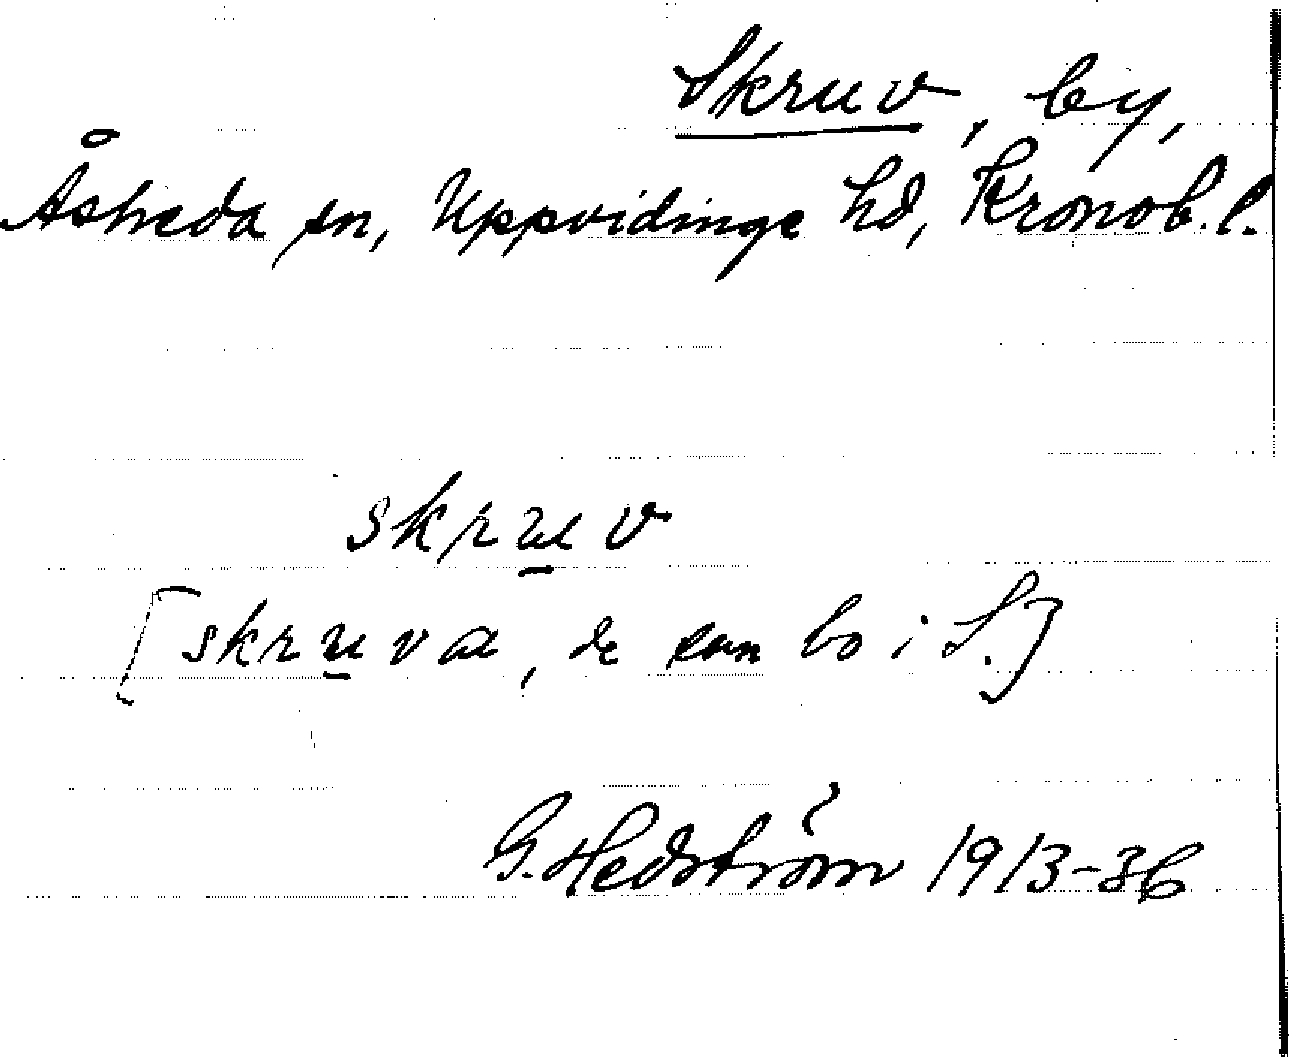 Skruv, by,
Åsheda sn, Uppvidinge hd, Kronob. l.
skru̲v
[skru̲va, de som bo i S.]
G. Hedström 1913-36